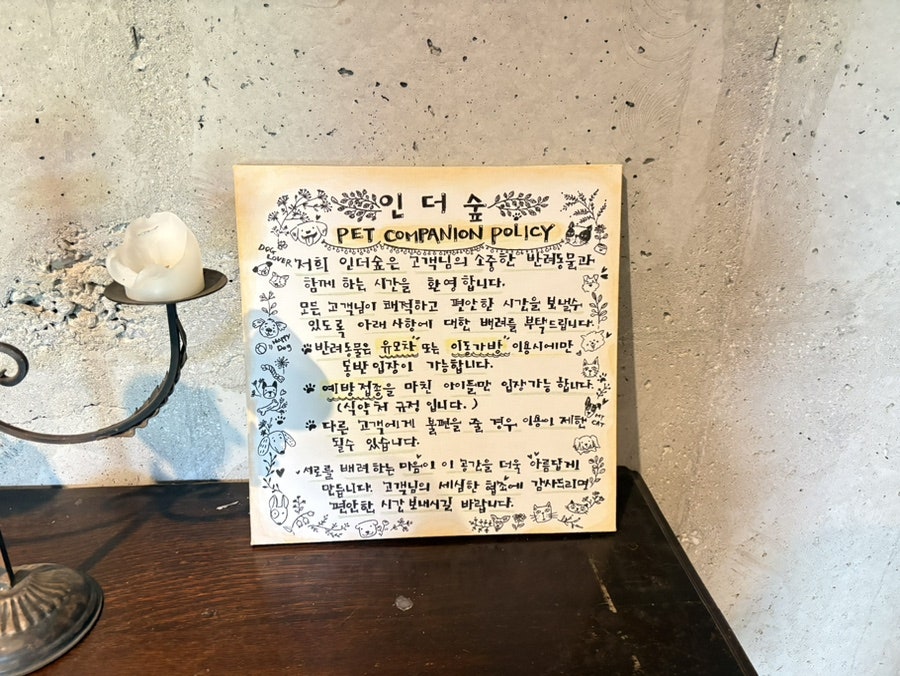 인더숲
PET COMPANION POLICY
DOG
LOVER
저희 인더숲은 고객님의 소중한 반려동물과
함께 하는 시간을 환영합니다.
모든 고객님이 쾌적하고 편안한 시간을 보낼수
있도록 아래 사항에 대한 배려를 부탁드립니다.
HAPPY
Dog
반려동물은 "유모차" 또는 "이동가방" 이용시에만
동반입장이 가능합니다.
예방접종을 마친 아이들만 입장가능 합니다.
(식약처 규정 입니다.)
다른 고객에게 불편을 줄 경우 이용이 제한
될수 있습니다.
MY
CAT
서로를 배려하는 마음이 이 공간을 더욱 아름답게
만듭니다. 고객님의 세심한 협조에 감사드리며
편안한 시간 보내시길 바랍니다.